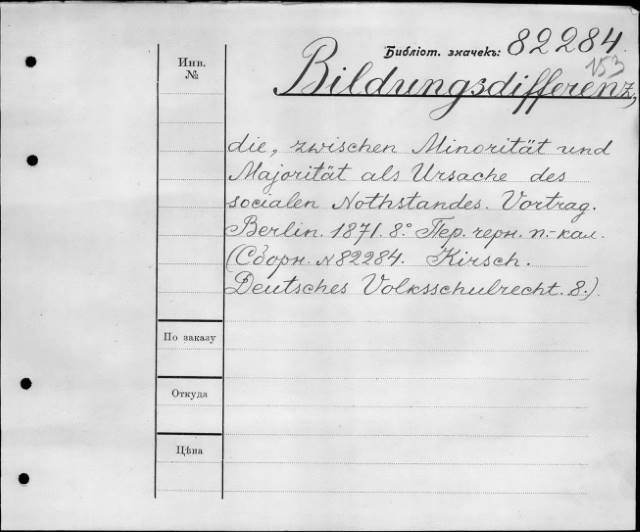 Библіот. значекъ: 82284
153
Инв.
№
Bildungsdifferenz,
die, zwischen Minorität und
Majorität als Ursache des
socialen Nothstandes. Vortrag.
Berlin. 1871. 8.° Пер. черн. п.-кал.
(Сборн. №82284. Kirsch.
Deutsches Volksschulrecht. 8.)
По заказу
Откуда
Цѣна